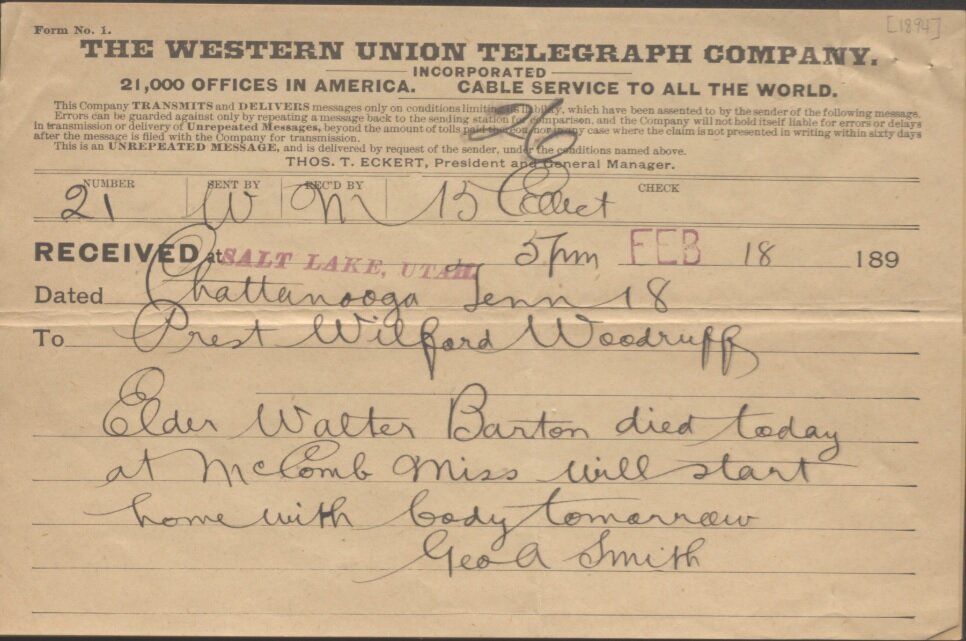 [1894]
Form No. 1.
THE WESTERN UNION TELEGRAPH COMPANY.
INCORPORATED
21,000 OFFICES IN AMERICA. CABLE SERVICE TO ALL THE WORLD.
This Company TRANSMITS and DELIVERS messages only on conditions limiting its liability, which have been assented to by the sender of the following message.
Errors can be guarded against only by repeating a message back to the sending station for comparison, and the Company will not hold itself liable for errors or delays
in transmission or delivery of Unrepeated Messages, beyond the amount of tolls paid thereon, nor in any case where the claim is not presented in writing within sixty days
after the message is filed with the Company for transmission.
This is an UNREPEATED MESSAGE, and is delivered by request of the sender, under the conditions named above.
THOS. T. ECKERT, President and General Manager.
NUMBER SENT BY REC'D BY CHECK
21 W M 15 Collect
RECEIVED at SALT LAKE, UTAH 5 pm FEB 18 189
Dated Chattanooga Tenn 18
To Prest Wilford Woodruff
Elder Walter Barton died today
at McComb Miss will start
home with body tomorrow
Geo A Smith